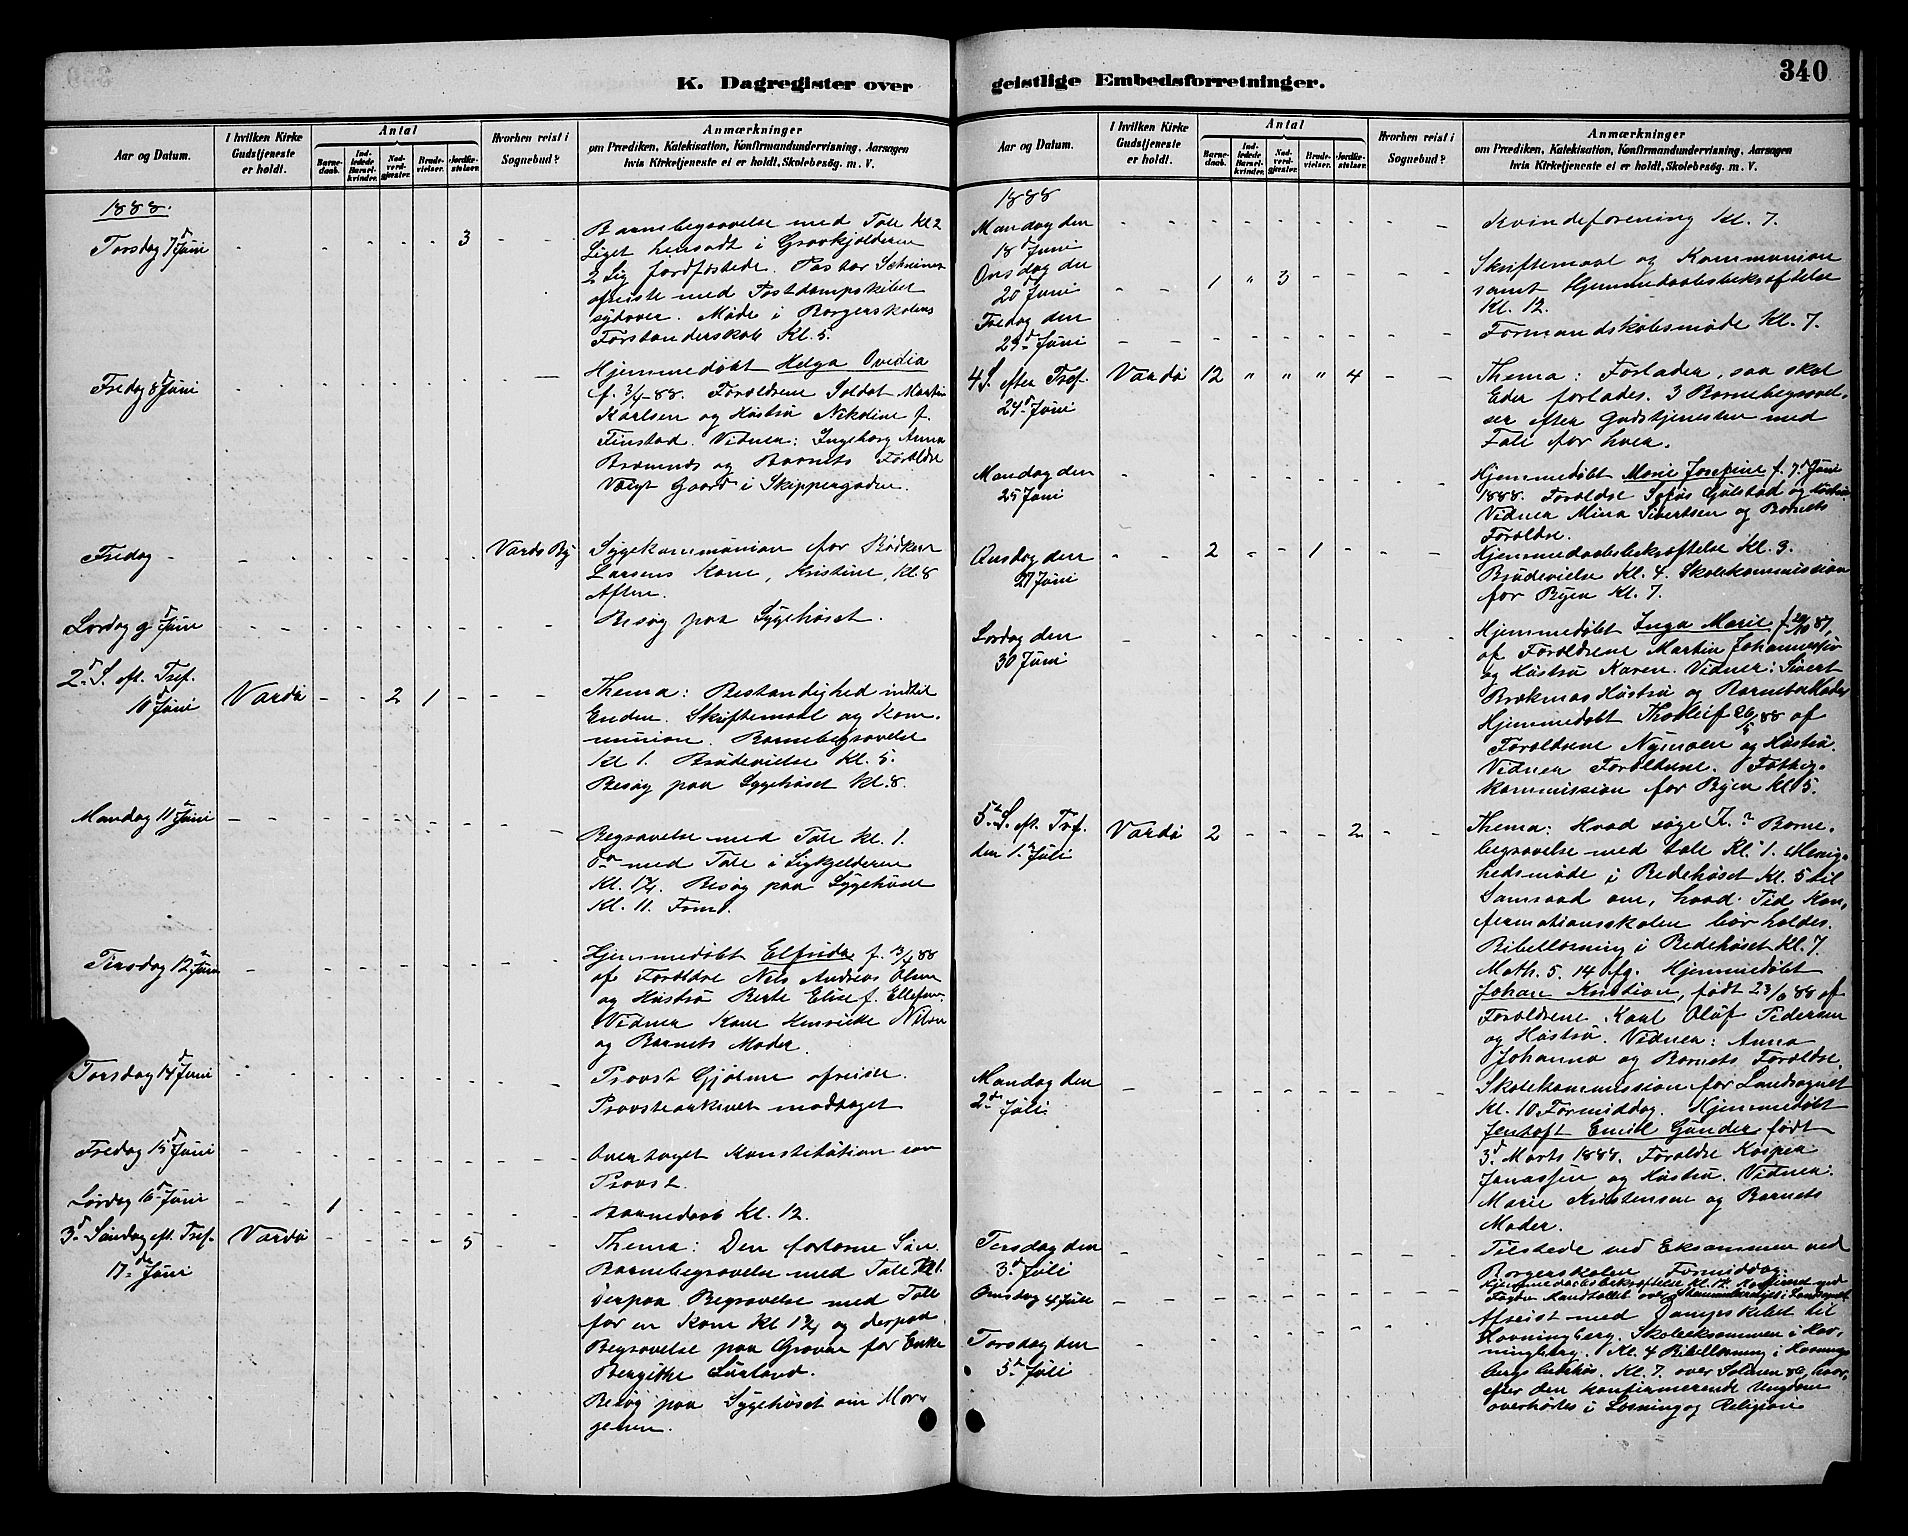 K. Dagregister over
Aar og Datum.
I hvilken Kirke Gudstjeneste er holdt.
Antal
Barnedaab.
Indledede Barselkvinder.
Nadverdgjæster.
Brudevielser.
Jordfæstelser.
Hvorhen reist i Sognebud?
Anmærkninger
om Prædiken, Katekisation, Konfirmandundervisning, Aarsagen
hvis Kirketjeneste ei er holdt, Skolebesøg. m. V.
1888.
Torsdag 7d Juni - 3 Barnebegravelse med Tale Kl 2
Liget hensadt i Gravkjelderen
2 Lig jordfæstede. Pastor Schreiner
afreiste med Postdampskibet
sydover. Møde i Borgerskolens
Forstanderskab Kl. 5.
Fredag 8d Juni Hjemmedøbt Helga Ovedia
f. 3/4-88. Forældrene Soldat Martin
Karlsen og Hustru Nikoline f.
Finstad. Vidner: Ingeborg Anna
og Barnets Forældre
Voigt Gaard i Skippergaden.
Fredag - Vardø By Sygekommunion for Bødker
Larsens Kone, Kristine, Kl. 8
Aften.
Lørdag 9d Juni Besøg paa Sygehuset.
2d S. eft. Tref.
10d Juni Vardø - - 2 1 - Thema: Bestandighed indtil
Enden. Skriftemaal og Kom-
munion. Barnebegravelse
Kl 1. Brudevielse Kl. 5.
Besøg paa Sygehuset Kl. 8.
Mandag 11d Juni
Begravelse med Tale Kl. 1.
Do med Tale i Ligkjelderen
Kl. 1¼. Besøg paa Sygehuset
Kl. 11. Form.
Tirsdag 12d Juni Hjemmedøbt Elfrida f. /4 88
af Forældre Nils Andreas Olsen
og Hustru Berte Elise f. Ellefsen.
Vidner Kone Henrikke Nilsen
og Barnets Moder.
Torsdag 14d Juni Provst Gjølme afreiste.
Provstearkivet modtaget
Fredag 15d Juni Overtaget Konstitution som
Provst.
Lørdag 16d Juni 1 Barnedaab Kl. 12.
3d Søndag eft. Tref. Vardø - 5 Thema: Den fortabte Søn.
17de Juni Barnebegravelse med Tale Kl 1.
derpaa Begravelse med Tale
for en Kone Kl 1¼ og derpaa
Begravelse paa Graven for Enke
Bergithe
Besøg paa Sygehuset om Mor-
genen.
geistlige Embedsforretninger.
340
Aar og Datum.
I hvilken Kirke Gudstjeneste er holdt.
Antal
Barnedaab.
Indledede Barselkvinder.
Nadverdgjæster.
Brudevielser.
Jordfæstelser.
Hvorhen reist i Sognebud?
Anmærkninger
om Prædiken, Katekisation, Konfirmandundervisning, Aarsagen
hvis Kirketjeneste ei er holdt, Skolebesøg. m. V.
1888
Mandag den Kvindeforening Kl. 7.
18d Juni
Onsdag den 1 " 3 - - Skriftemaal og Kommunion
20d Juni samt Hjemmedaabsbekræftelse
Kl. 12.
Fredag den Formandskabsmøde Kl. 7.
29d Juni
4 S. efter Tref. Vardø 12 " " " 4 Thema: Forlader, saa skal
24d Juni Eder forlades. 3 Barnebegravel-
ser efter Gudstjenesten med
Tale for hver.
Mandag den Hjemmedøbt Marie Josefine f. 7d Juni
25 Juni 1888. Forældre Sofus Gulstad og Hustru
Vidner Mina Sivertsen og Barnets
Forældre.
Onsdag den 2 - - 1 - Hjemmedaabsbekræftelse Kl. 3.
27 Juni Brudevielse Kl. 4. Skolekommission
for Byen Kl. 7.
Lørdag den Hjemmedøbt Inga Marie f. 87,
30 Juni af Forældrene Martin Johannessen
og Hustru Karen. Vidner: Sivert
Hustru og Barnets Moder
Hjemmedøbt Thorleif 26/5 88 af
Forældrene Nymoen og Hustru.
Vidner Forældrene. Fattig-
kommission for Byen Kl 5.
5te S. eft. Tref. Vardø 2 - - - 2 Thema: Hvad søge I? Barne-
den 1. Juli begravelse med tale Kl. 1. Menig-
hedsmøde i Bedehuset Kl. 5 til
Samraad om, hvad Tid Kon-
firmationsskolen bør holdes.
Bibellæsning i Bedehuset Kl. 7
Math. 5. 14 flg. Hjemmedøbt
Johan Kristian, født 23/ 88 af
Forældrene Karl Oluf Pedersen
og Hustru. Vidner: Anna
Johanna og Barnets Forældre.
Mandag den Skolekommission for Landsognet
2d Juli Kl. 10 Formiddag. Hjemmedøbt
Jentoft Emil Gunder født
3d Marts 1888. Forældre Kasper
Jonassen og Hustru. Vidner:
Marie Kristensen og Barnets
Moder.
Tirsdag den Tilstede ved Eksammen ved
3d Juli Borgerskolen Formiddag.
Hjemmedaabsbekræftelse Kl. 12.
Onsdag 4 Juli Afreist med Dampskibet til
Havningberg. Skoleeksammen i Hav-
Torsdag den ningberg. Kl. 4 Bibellæsning i Havnings
5d Juli bergs Kl. 7 over Salmen 86, hvor-
efter den konfirmerende Ungdom
overhørtes i Læsning og Religion